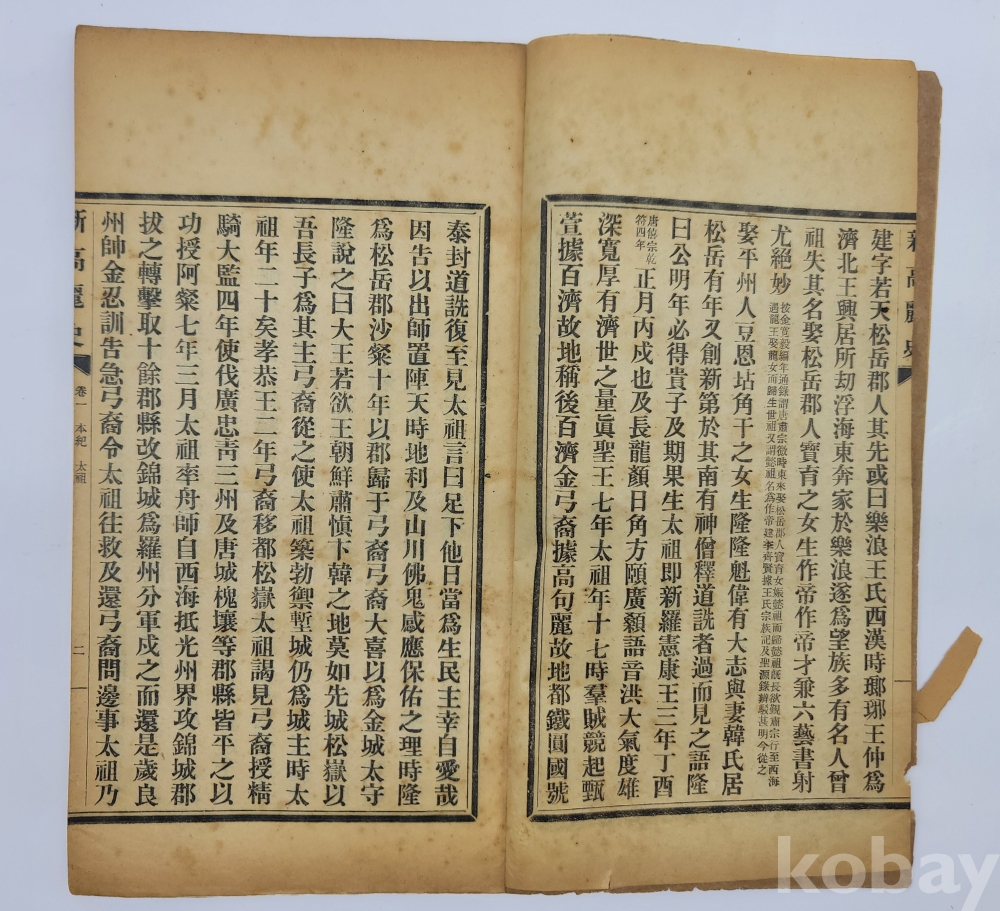 建字若天松岳郡人其先或曰樂浪王氏西漢時瑯琊王仲爲
濟北王興居所刧浮海東奔家於樂浪遂爲望族多有名人曾
祖失其名娶松岳郡人寶育之女生作帝作帝才兼六藝書射
尤絕妙
按金寬毅編年通錄謂唐肅宗微時東來娶松岳郡人寶育女娠懿祖而歸懿祖旣長欲覲肅宗行至西海
遇龍王娶龍女而歸生世祖又謂懿祖名爲作帝建李齊賢據王氏宗族記及聖源錄辨駁甚明今從之
娶平州人豆恩坫角干之女生隆隆魁偉有大志與妻韓氏居
松岳有年又創新第於其南有神僧釋道詵者過而見之語隆
曰公明年必得貴子及期果生太祖卽新羅憲康王三年丁酉
唐僖宗乾
符四年
正月丙戌也及長龍顏日角方頤廣顙語音洪大氣度雄
深寬厚有濟世之量眞聖王七年太祖年十七時羣賊競起甄
萱據百濟故地稱後百濟金弓裔據高句麗故地都鐵圓國號
泰封道詵復至見太祖言曰足下他日當爲生民主幸自愛哉
因告以出師置陣天時地利及山川佛鬼感應保佑之理時隆
爲松岳郡沙粲十年以郡歸于弓裔弓裔大喜以爲金城太守
隆說之曰大王若欲王朝鮮肅愼卞韓之地莫如先城松嶽以
吾長子爲其主弓裔從之使太祖築勃禦塹城仍爲城主時太
祖年二十矣孝恭王二年弓裔移都松嶽太祖謁見弓裔授精
騎大監四年使伐廣忠靑三州及唐城槐壤等郡縣皆平之以
功授阿粲七年三月太祖率舟師自西海抵光州界攻錦城郡
拔之轉擊取十餘郡縣改錦城爲羅州分軍戍之而還是歲良
州帥金忍訓告急弓裔令太祖往救及還弓裔問邊事太祖乃
新高麗史
卷一 本紀 太祖
二
kobay